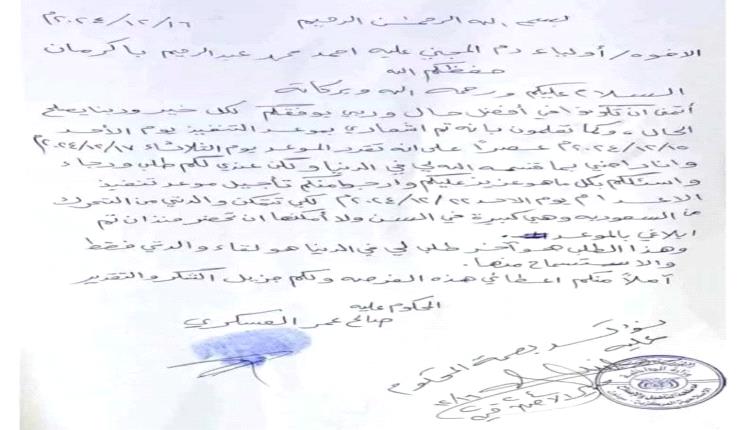 بسم الله الرحمن الرحيم ٢٠٢٤/١٢/١٦م
الاخوة/ أولياء دم المجني عليه احمد محمد عبدالرحيم باكرمان
حفظكم الله
السلام عليكم ورحمة الله وبركاته
أتمنى ان تكونوا في أفضل حال وربي يوفقكم لكل خير وربنا يصلح
الحال، وكما تعلمون بانه تم اشعاري بموعد التنفيذ يوم الأحد
٢٠٢٤/١٢/١٥م عصراً على انه تقرر الموعد يوم الثلاثاء ٢٠٢٤/١٢/١٧م
وانا راضي بما قسمه الله لي في الدنيا ولكن عندي لكم طلب ورجاء
واسئلكم بكل ما هو عزيز عليكم وارجوا منكم تأجيل موعد تنفيذ
الاعدام يوم الاحد ٢٠٢٤/١٢/٢٢م لكي تتمكن والدتي من التحرك
من السعودية وهي كبيرة في السن ولا أمكنها ان تحضر منذ ان تم
ابلاغي بالموعد
وهذا الطلب هو آخر طلب لي في الدنيا هو لقاء والدتي فقط
والاستسماح منها.
آملاً منكم اعطائي هذه الفرصه ولكم جزيل الشكر والتقدير
المحكوم عليه
صالح عمر العسكري
نؤكد بصمة المحكوم
عليه
وزارة الداخلية